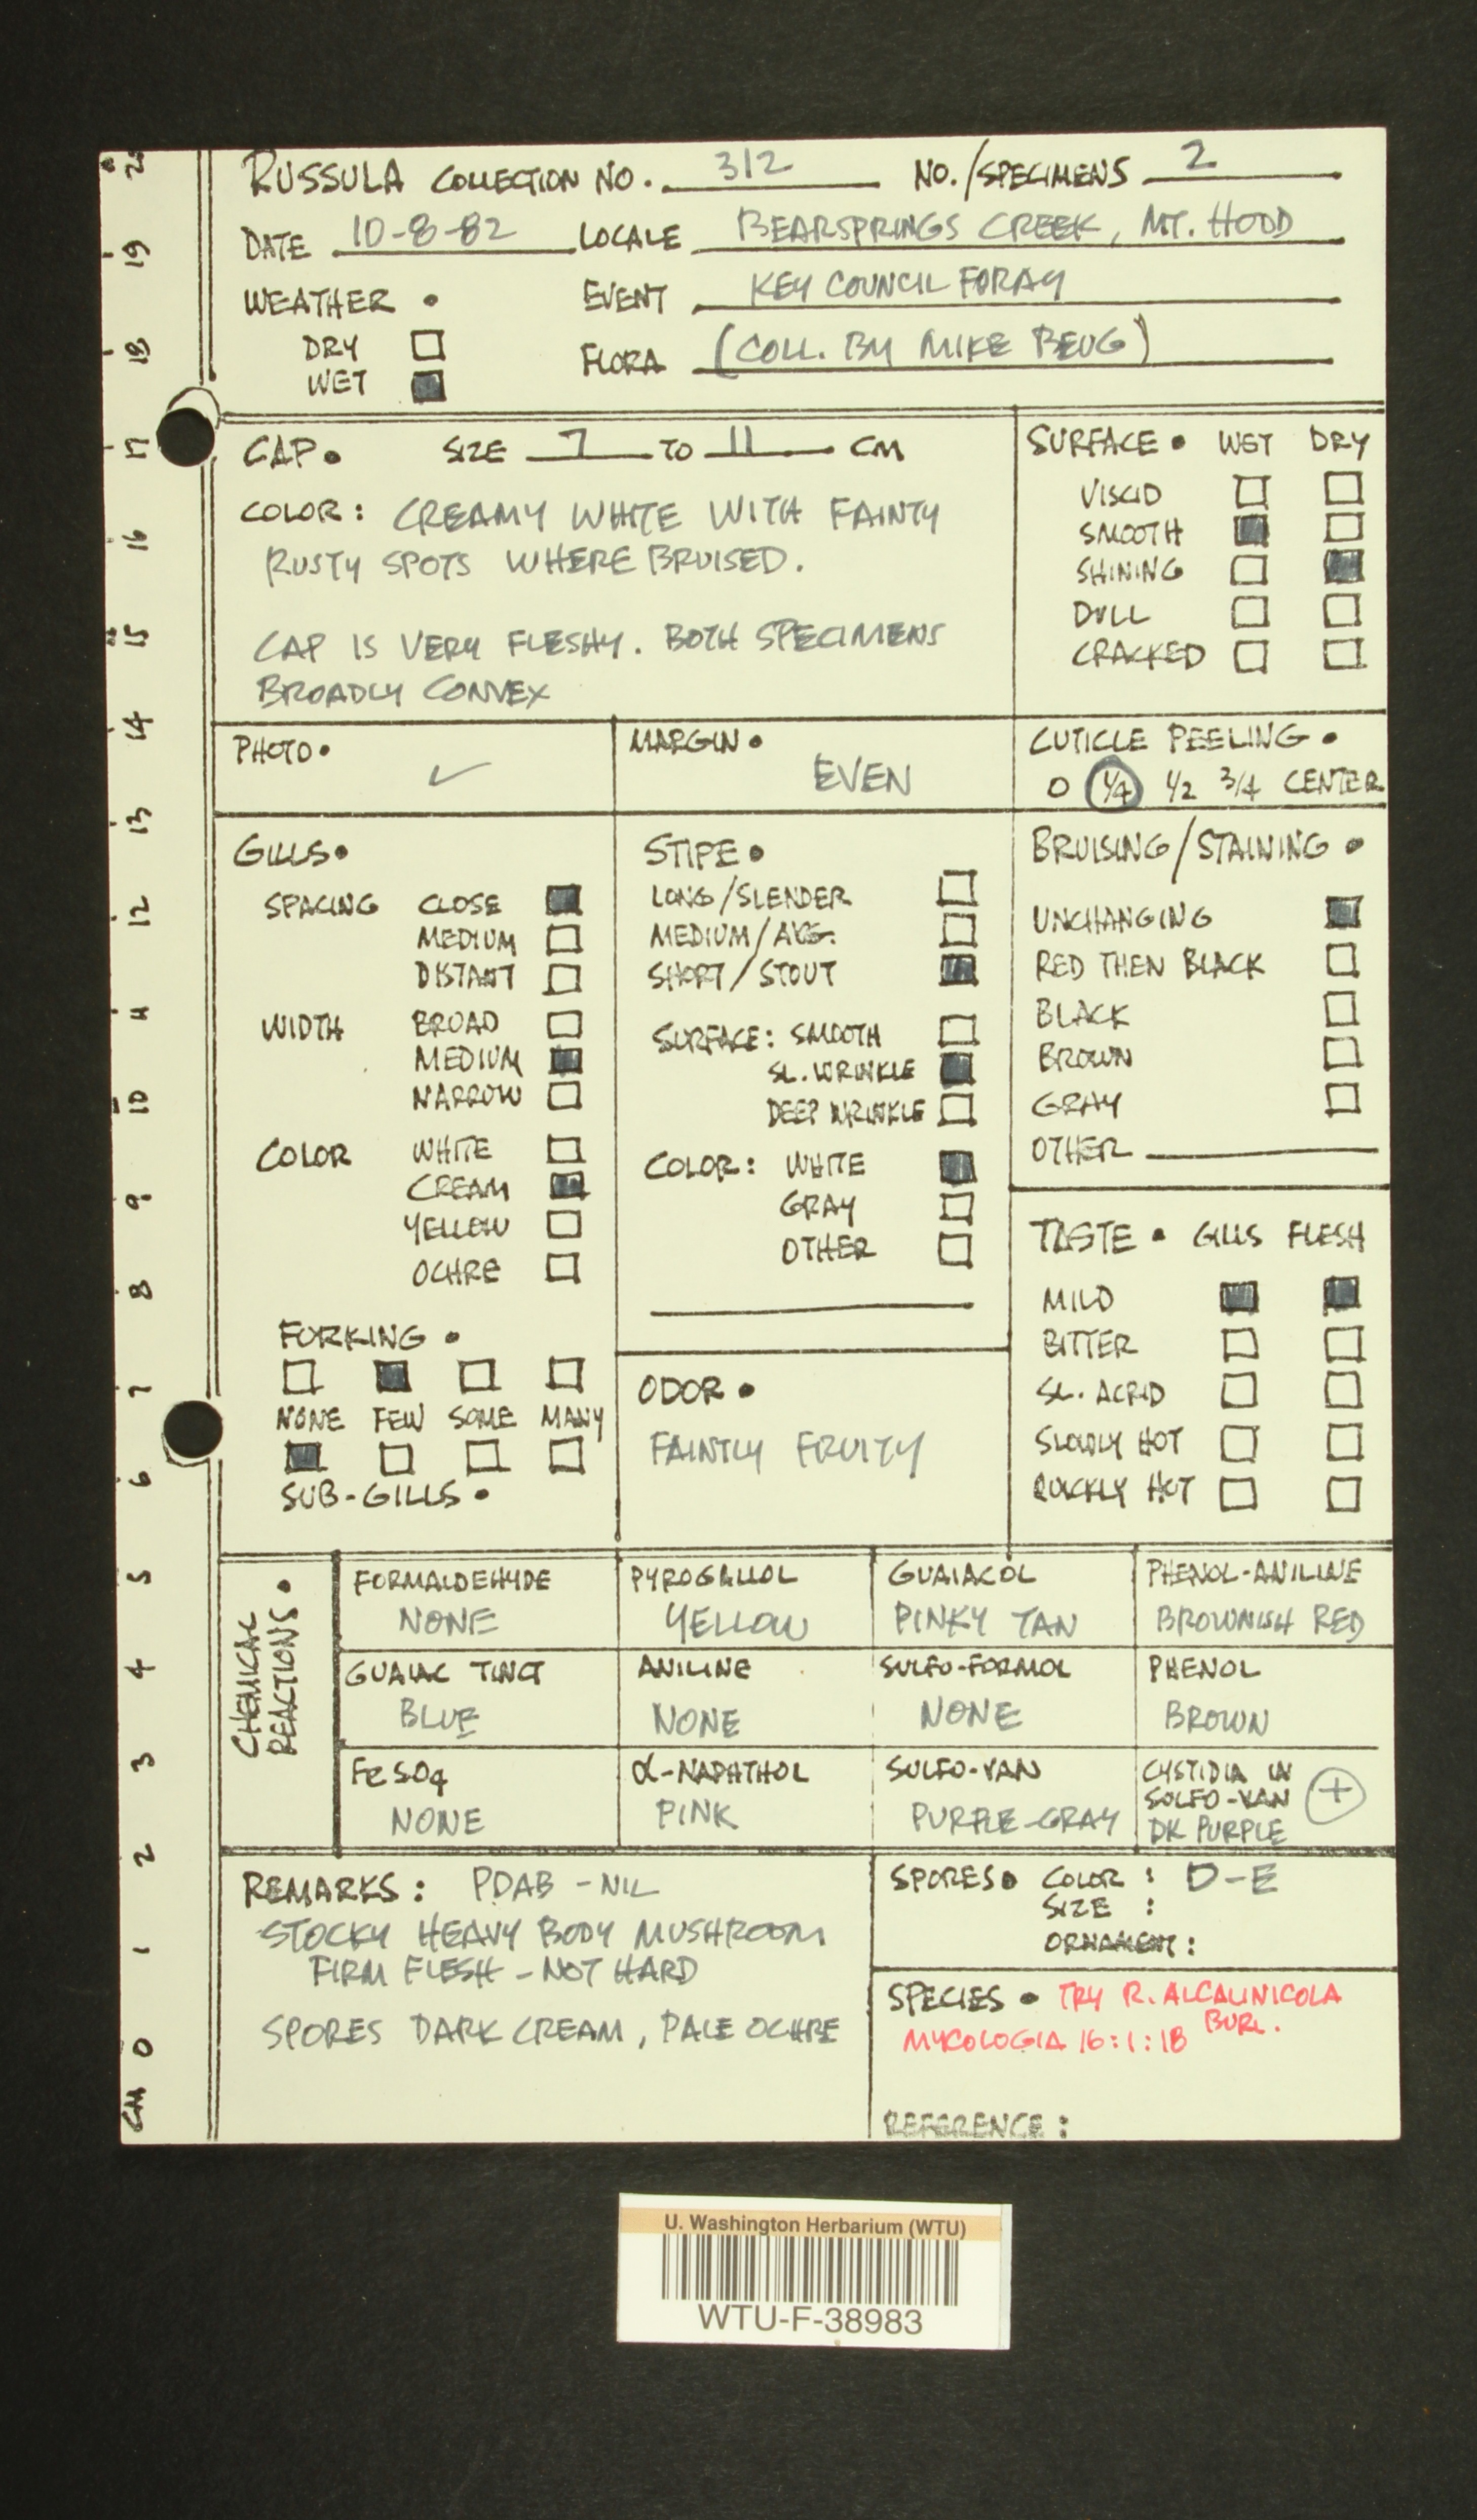 RUSSULA COLLECTION NO. 312 NO./SPECIMENS 2
DATE 10-8-82 LOCALE BEARSPRINGS CREEK, MT. HOOD
WEATHER • EVENT KEY COUNCIL FORAY
DRY FLORA (COLL. BY MIKE BEUG)
WET
CAP • SIZE 7 TO 11 CM
COLOR: CREAMY WHITE WITH FAINTY
RUSTY SPOTS WHERE BRUISED.
CAP IS VERY FLESHY. BOTH SPECIMENS
BROADLY CONVEX
SURFACE • WET DRY
VISCID
SMOOTH
SHINING
DULL
CRACKED
PHOTO • ✓
MARGIN •
EVEN
CUTICLE PEELING •
0 1/4 1/2 3/4 CENTER
GILLS •
SPACING CLOSE
MEDIUM
DISTANT
WIDTH BROAD
MEDIUM
NARROW
COLOR WHITE
CREAM
YELLOW
OCHRE
FORKING •
NONE FEW SOME MANY
SUB-GILLS •
STIPE •
LONG/SLENDER
MEDIUM/AVG.
SHORT/STOUT
SURFACE: SMOOTH
SL. WRINKLE
DEEP WRINKLE
COLOR: WHITE
GRAY
OTHER
ODOR •
FAINTLY FRUITY
BRUISING/STAINING •
UNCHANGING
RED THEN BLACK
BLACK
BROWN
GRAY
OTHER
TASTE • GILLS FLESH
MILD
BITTER
SL. ACRID
SLOWLY HOT
QUICKLY HOT
CHEMICAL
REACTIONS •
FORMALDEHYDE PYROGALLOL GUAIACOL PHENOL-ANILINE
NONE YELLOW PINKY TAN BROWNISH RED
GUAIAC TINCT ANILINE SULFO-FORMOL PHENOL
BLUE NONE NONE BROWN
FeSO4 α-NAPHTHOL SULFO-VAN CYSTIDIA IN
SULFO-VAN +
NONE PINK PURPLE-GRAY DK PURPLE
REMARKS: PDAB - NIL
STOCKY HEAVY BODY MUSHROOM
FIRM FLESH - NOT HARD
SPORES DARK CREAM, PALE OCHRE
SPORES • COLOR: D-E
SIZE:
ORNAMENT:
SPECIES • TRY R. ALCALINICOLA
BURL.
MYCOLOGIA 16:1:18
REFERENCE:
20
19
18
17
16
15
14
13
12
11
10
9
8
7
6
5
4
3
2
1
0
CM
U. Washington Herbarium (WTU)
WTU-F-38983